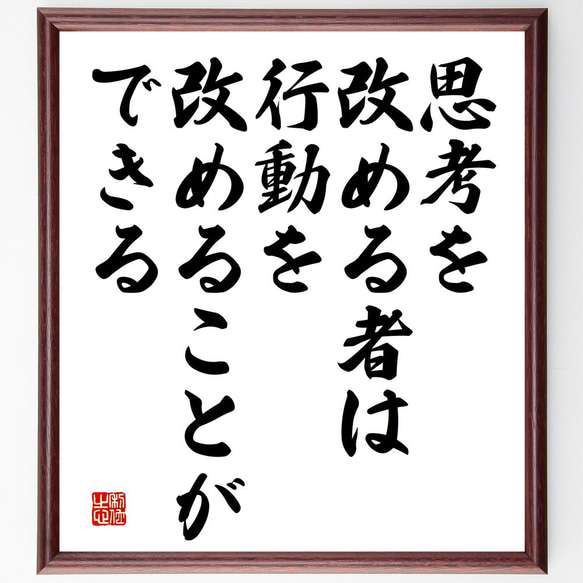 思考を
改める者は
行動を
改めることが
できる